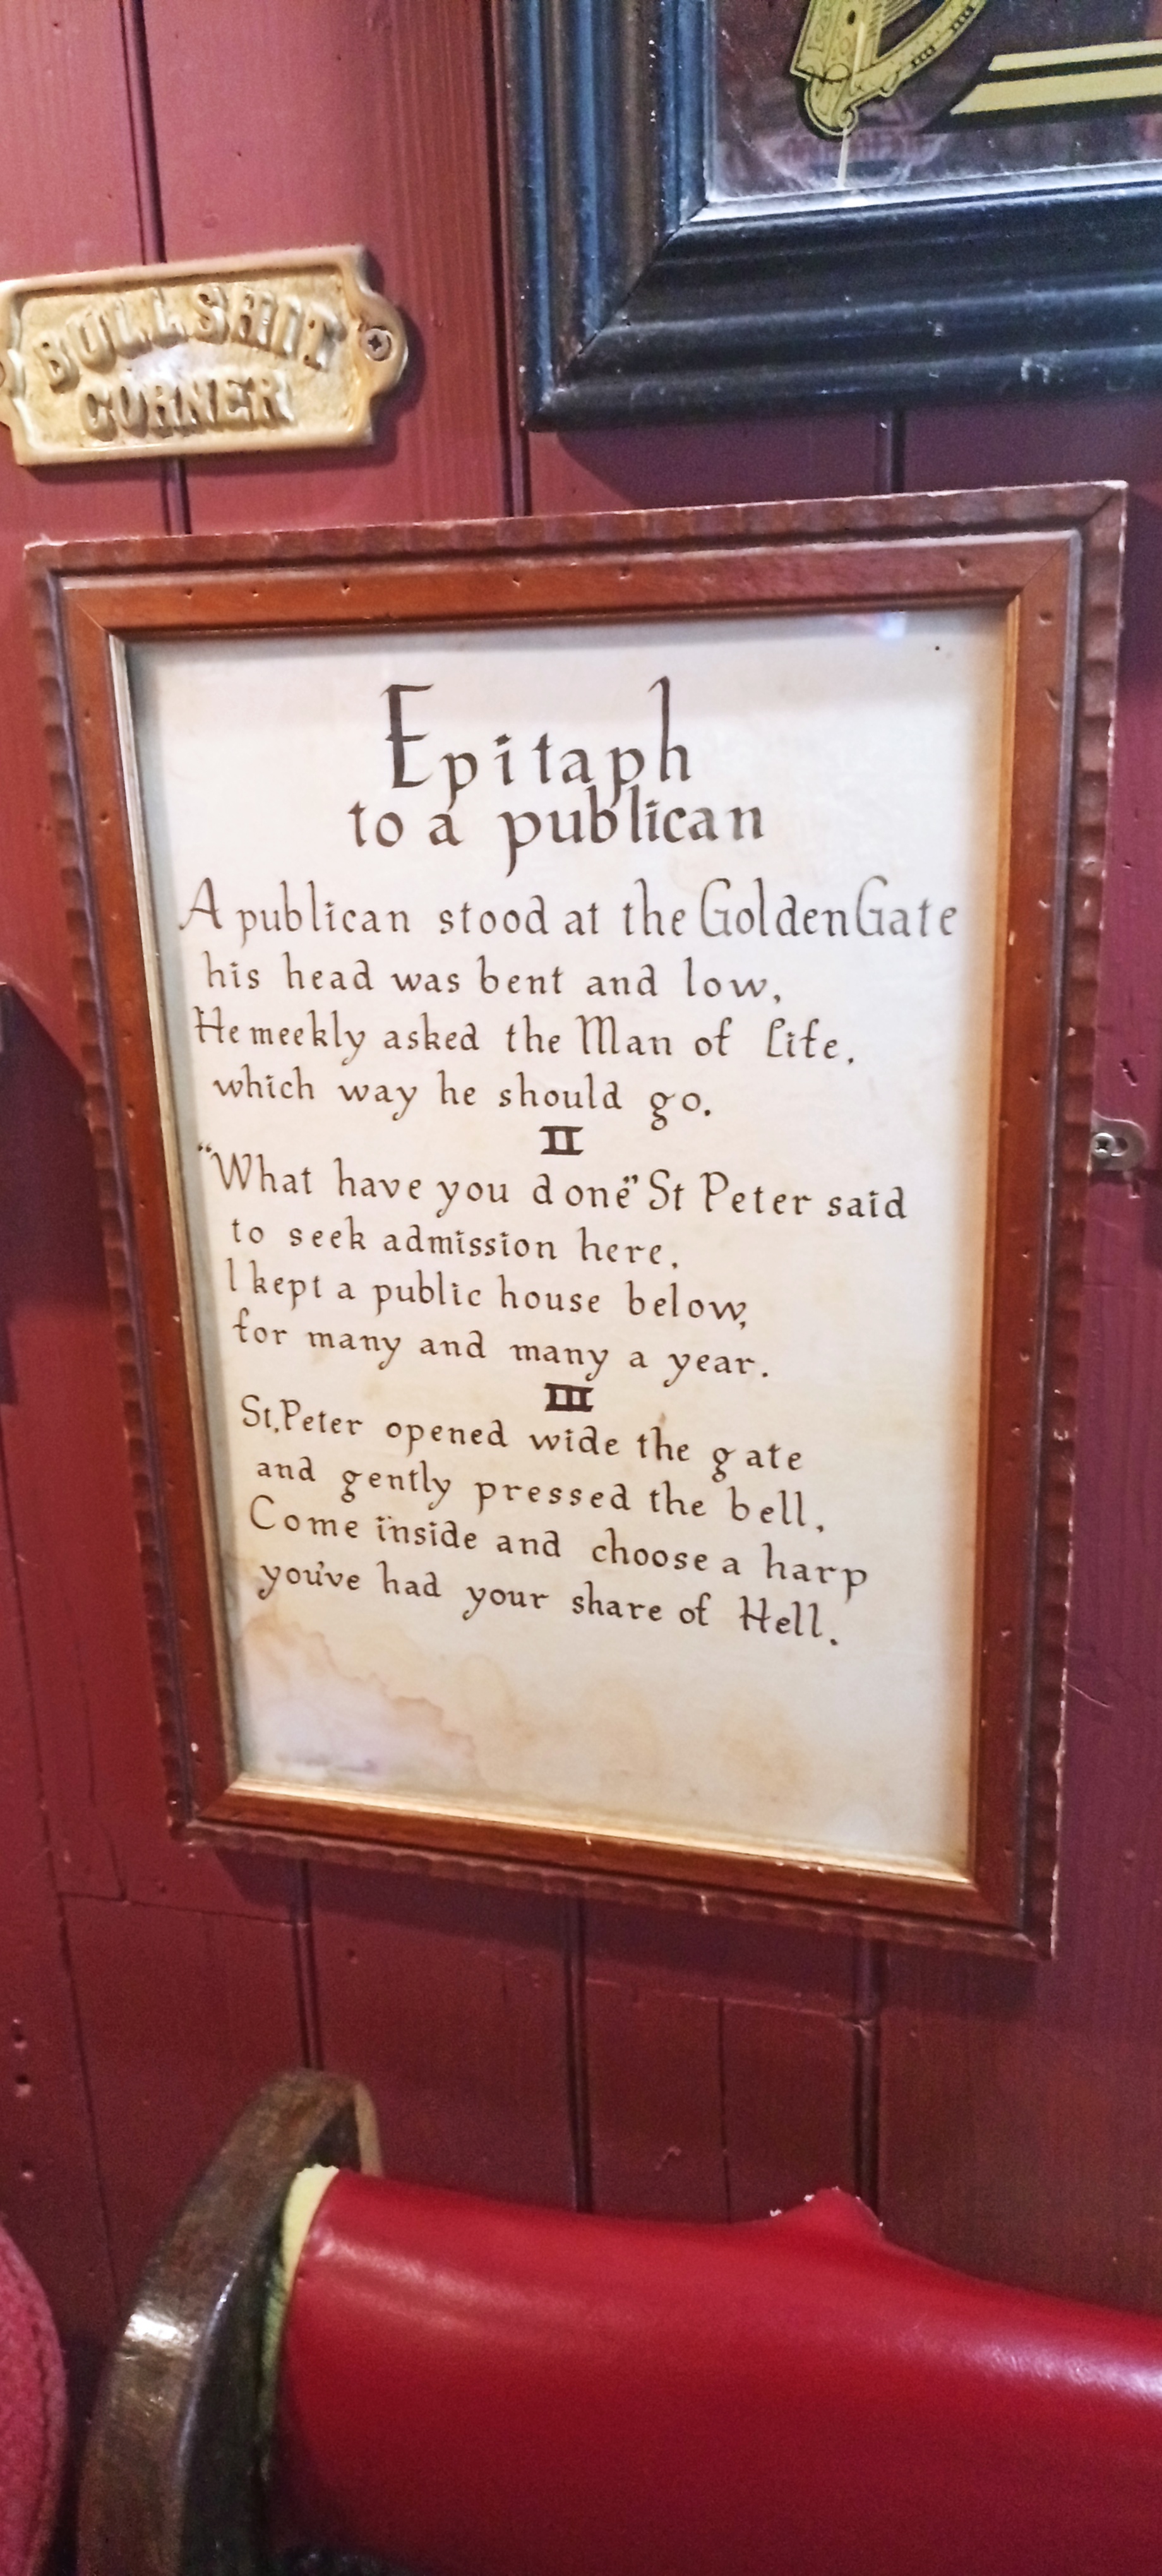 BULLSHIT
CORNER
Epitaph
to a publican
A publican stood at the Golden Gate
his head was bent and low,
He meekly asked the Man of Life,
which way he should go.
II
"What have you done" St Peter said
to seek admission here,
I kept a public house below,
for many and many a year.
III
St. Peter opened wide the gate
and gently pressed the bell,
Come inside and choose a harp
you've had your share of Hell.